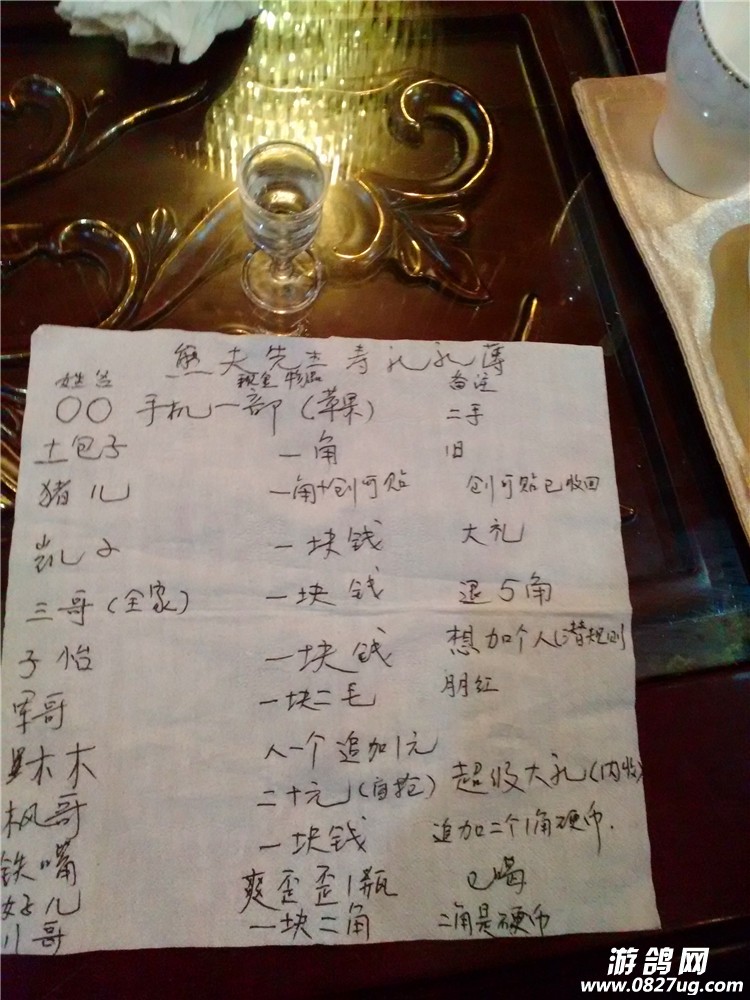 熊夫先生寿礼礼薄
姓名 现金 物品 备注
○○ 手机一部(苹果) 二手
土包子 一角 旧
猪儿 一角+创可贴 创可贴已收回
凯子 一块钱 大礼
三哥(全家) 一块钱 退5角
子怡 一块钱 想加个人(潜规则
军哥 一块二毛 朋红
木木 人一个 追加1元
枫哥 二十元(自抢) 超级大礼(内收)
铁嘴 一块钱 追加二个1角硬币.
好儿 爽歪歪1瓶 已喝
川哥 一块二角 二角是硬币
游鸽网
www.0827ug.com